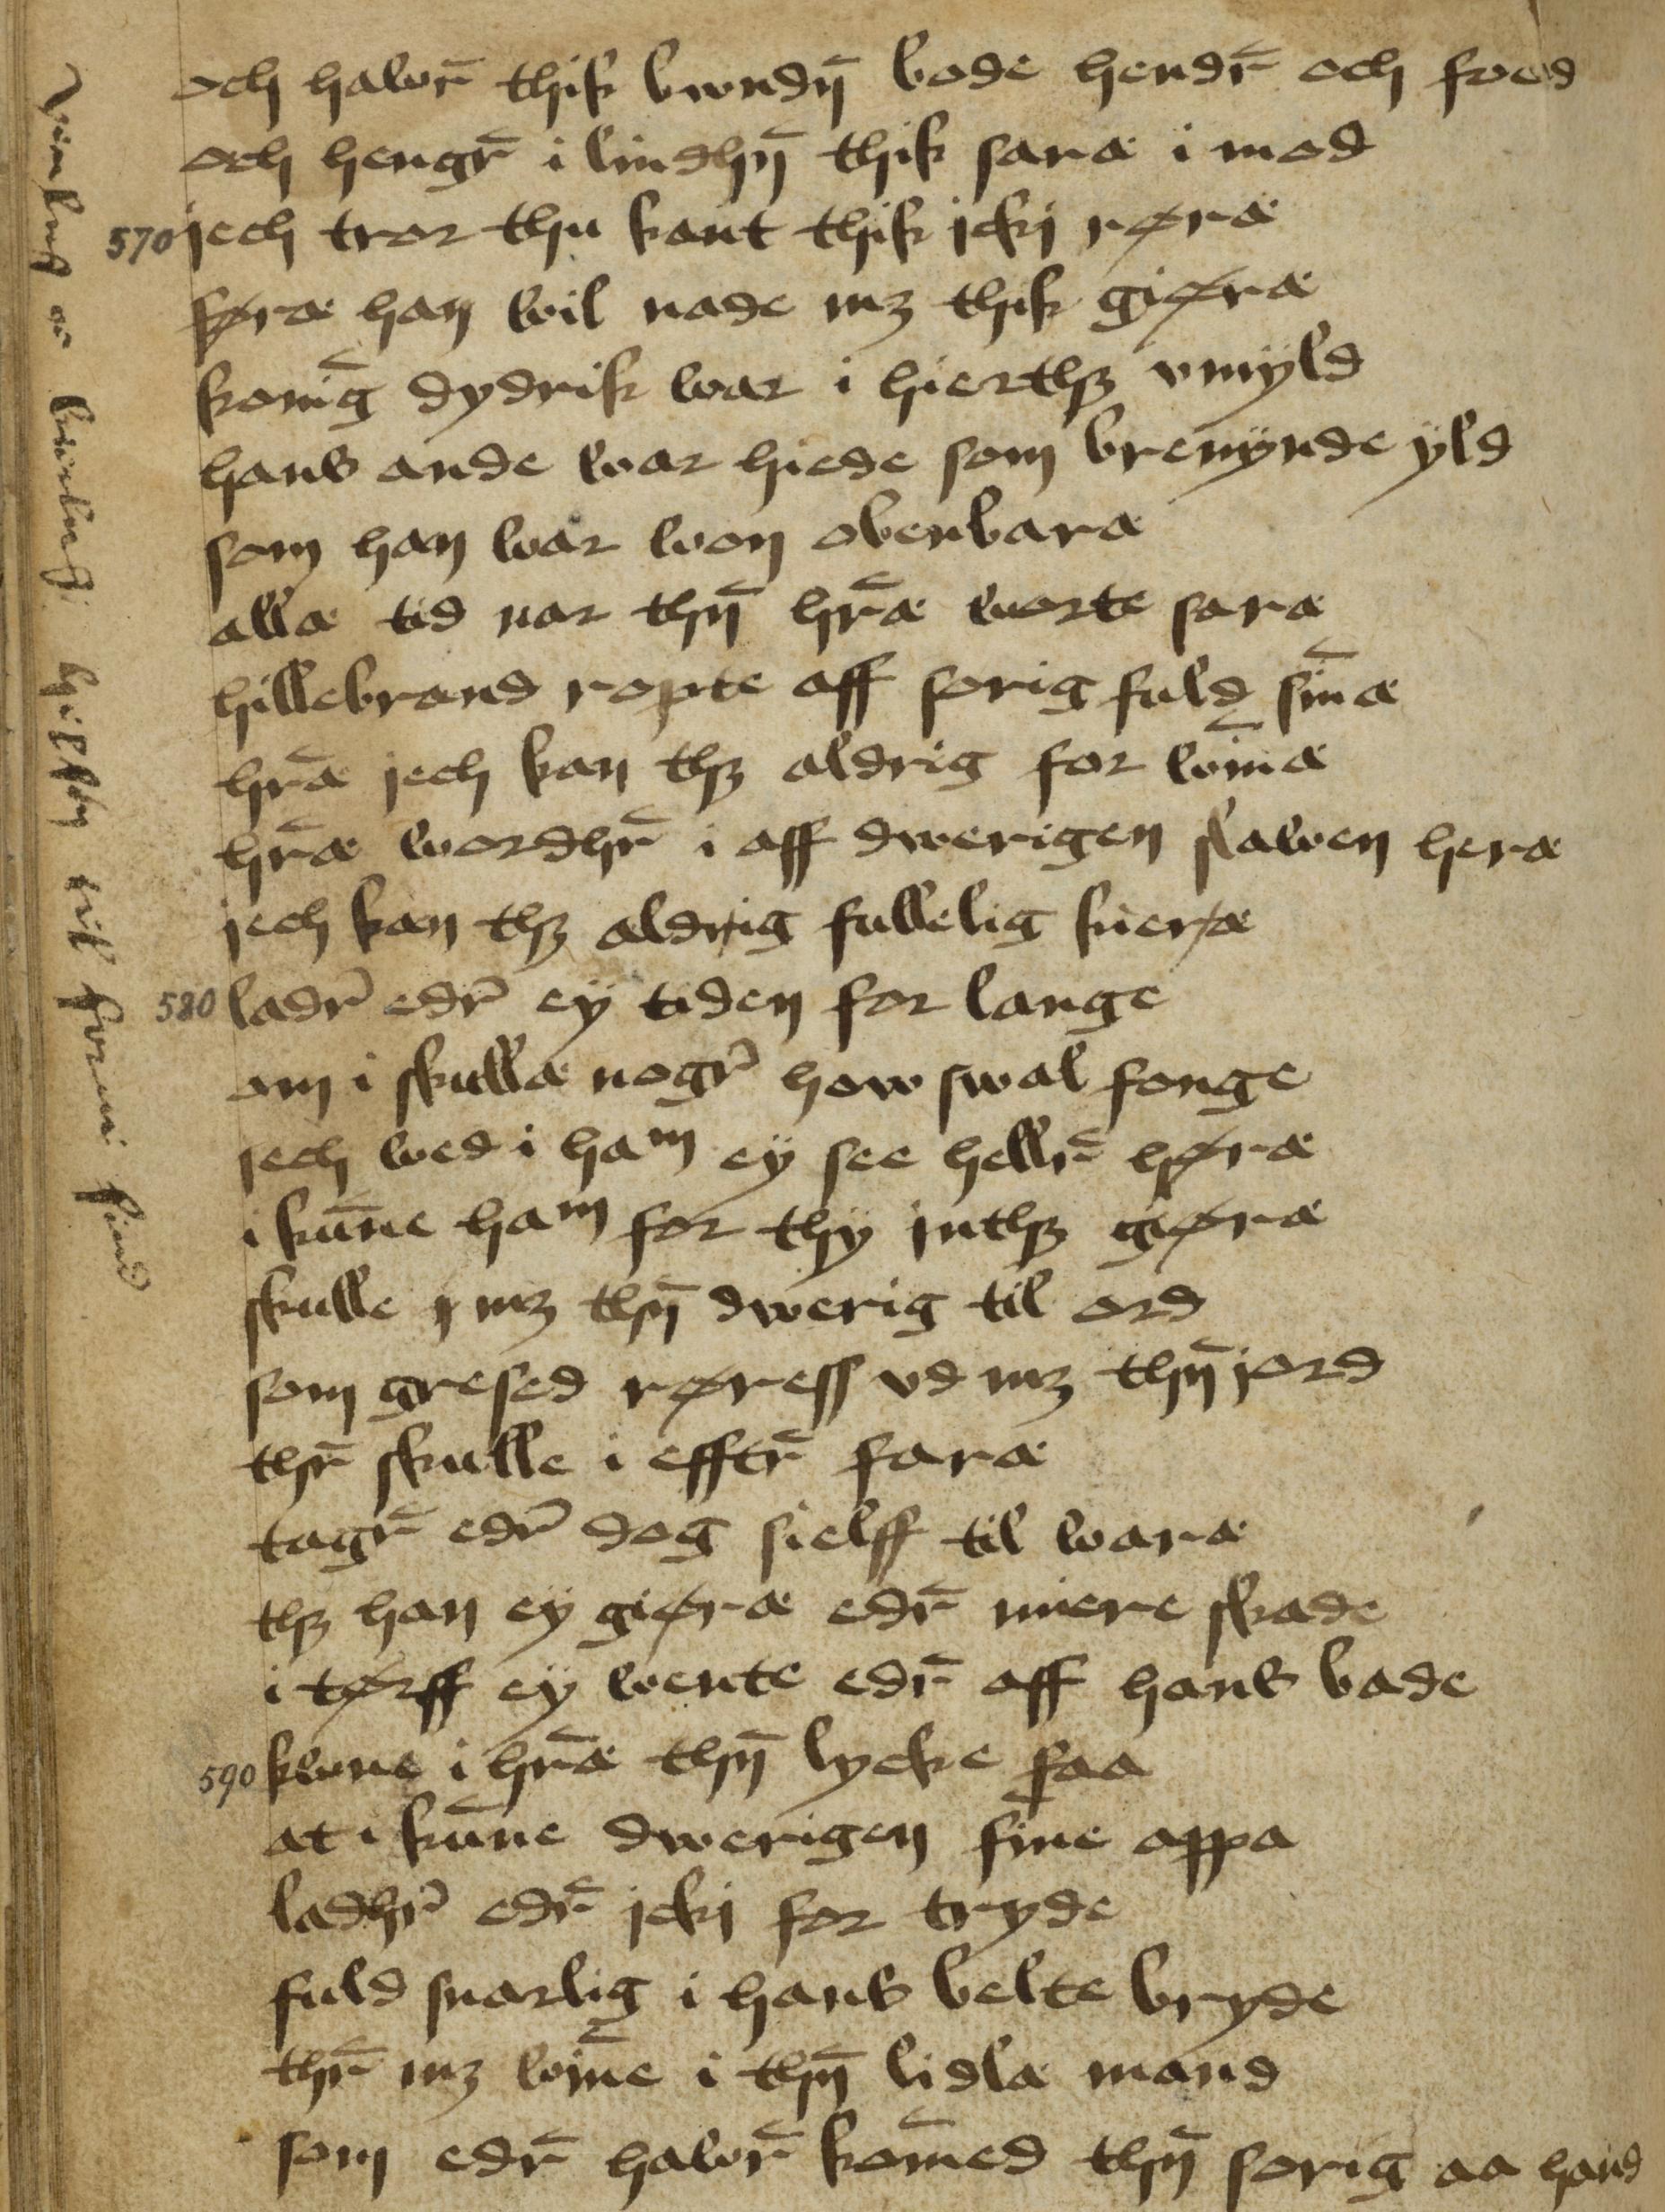 och hawr̄ thik bwndn̄ bode hendr̄ och food
och hengr̄ i lindhn̄ thik saræ i mod
570 jech tror thu kant thik icki røræ
føræ han wil nade mꝫ thik giøræ
konīg dydrik war i hierthꝫ vmyld
hans ande war hiede som brenynde yld
som han war won obenbaræ
allæ tid nar thn̄ hr̄æ worte saræ
hillebrand ropte aff sorig fuld sīnæ
hr̄æ jech kan thꝫ aldrig for wīnæ
hr̄æ wordhr̄ i aff dwerigen slawen heræ
jech kan thꝫ aldrig fullelig kieræ
580 ladr̄ edr̄ ey tiden for lange
om i skullæ nogr̄ how swal fonge
jech wed i ham ey see hellr̄ høræ
i kūne ham for thy inthꝫ giøræ
skulle i mꝫ thn̄ dwerig til ord
som gresed røreff vd mꝫ thn̄ jord
thr̄ skulle i efftr̄ faræ
tagr̄ edr̄ dog sielff til waræ
thꝫ han ey giøræ edr̄ miere skade
i tørff ey wente edr̄ aff hans bade
590 kwne i hr̄æ thn̄ lycke faa
at i kūne dwerigen fine appa
ladhr̄ edr̄ icki for tryde
fuld snarlig i hans belte bryde
thr̄ mꝫ wīne i thn̄ lidlæ mand
som edr̄ hawr̄ komed thn̄ sorig aa hand
til